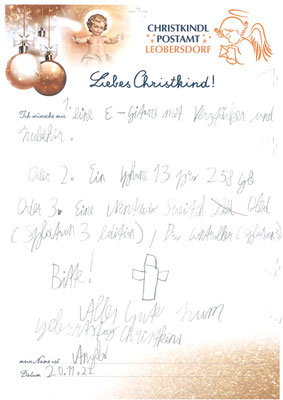 CHRISTKINDL
POSTAMT
LEOBERSDORF
Liebes Christkind!
Ich wünsche mir 1. eine E-Gitarre mit Verstärker und
Zubehör.
Oder 2. Ein Iphone 13 pro 258 gb
Oder 3. Eine Nintendo Switch Oled
(Splatoon 3 Edition) / Pro Controller (Splatoon 3)
Bitte!
Alles Gute zum
Geburtstag Christkind
mein Name ist
Datum 20.11.22